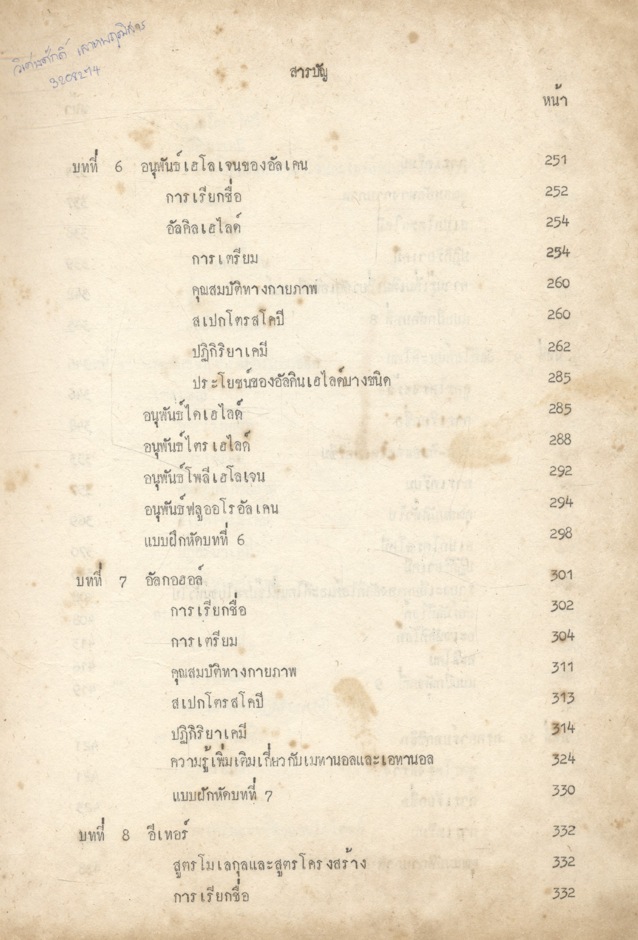 3208274
สารบัญ
หน้า
บทที่ 6 อนุพันธ์เฮโลเจนของอัลเคน 251
การเรียกชื่อ 252
อัลคิลเฮไลด์ 254
การเตรียม 254
คุณสมบัติทางกายภาพ 260
สเปกโตรสโคปี 260
ปฏิกิริยาเคมี 262
ประโยชน์ของอัลคิลเฮไลด์บางชนิด 285
อนุพันธ์ไดเฮไลด์ 285
อนุพันธ์ไตรเฮไลด์ 288
อนุพันธ์โพลีเฮโลเจน 292
อนุพันธ์ฟลูออโรอัลเคน 294
แบบฝึกหัดบทที่ 6 298
บทที่ 7 อัลกอฮอล์ 301
การเรียกชื่อ 302
การเตรียม 304
คุณสมบัติทางกายภาพ 311
สเปกโตรสโคปี 313
ปฏิกิริยาเคมี 314
ความรู้เพิ่มเติมเกี่ยวกับเมทานอลและเอทานอล 324
แบบฝึกหัดบทที่ 7 330
บทที่ 8 อีเทอร์ 332
สูตรโมเลกุลและสูตรโครงสร้าง 332
การเรียกชื่อ 332